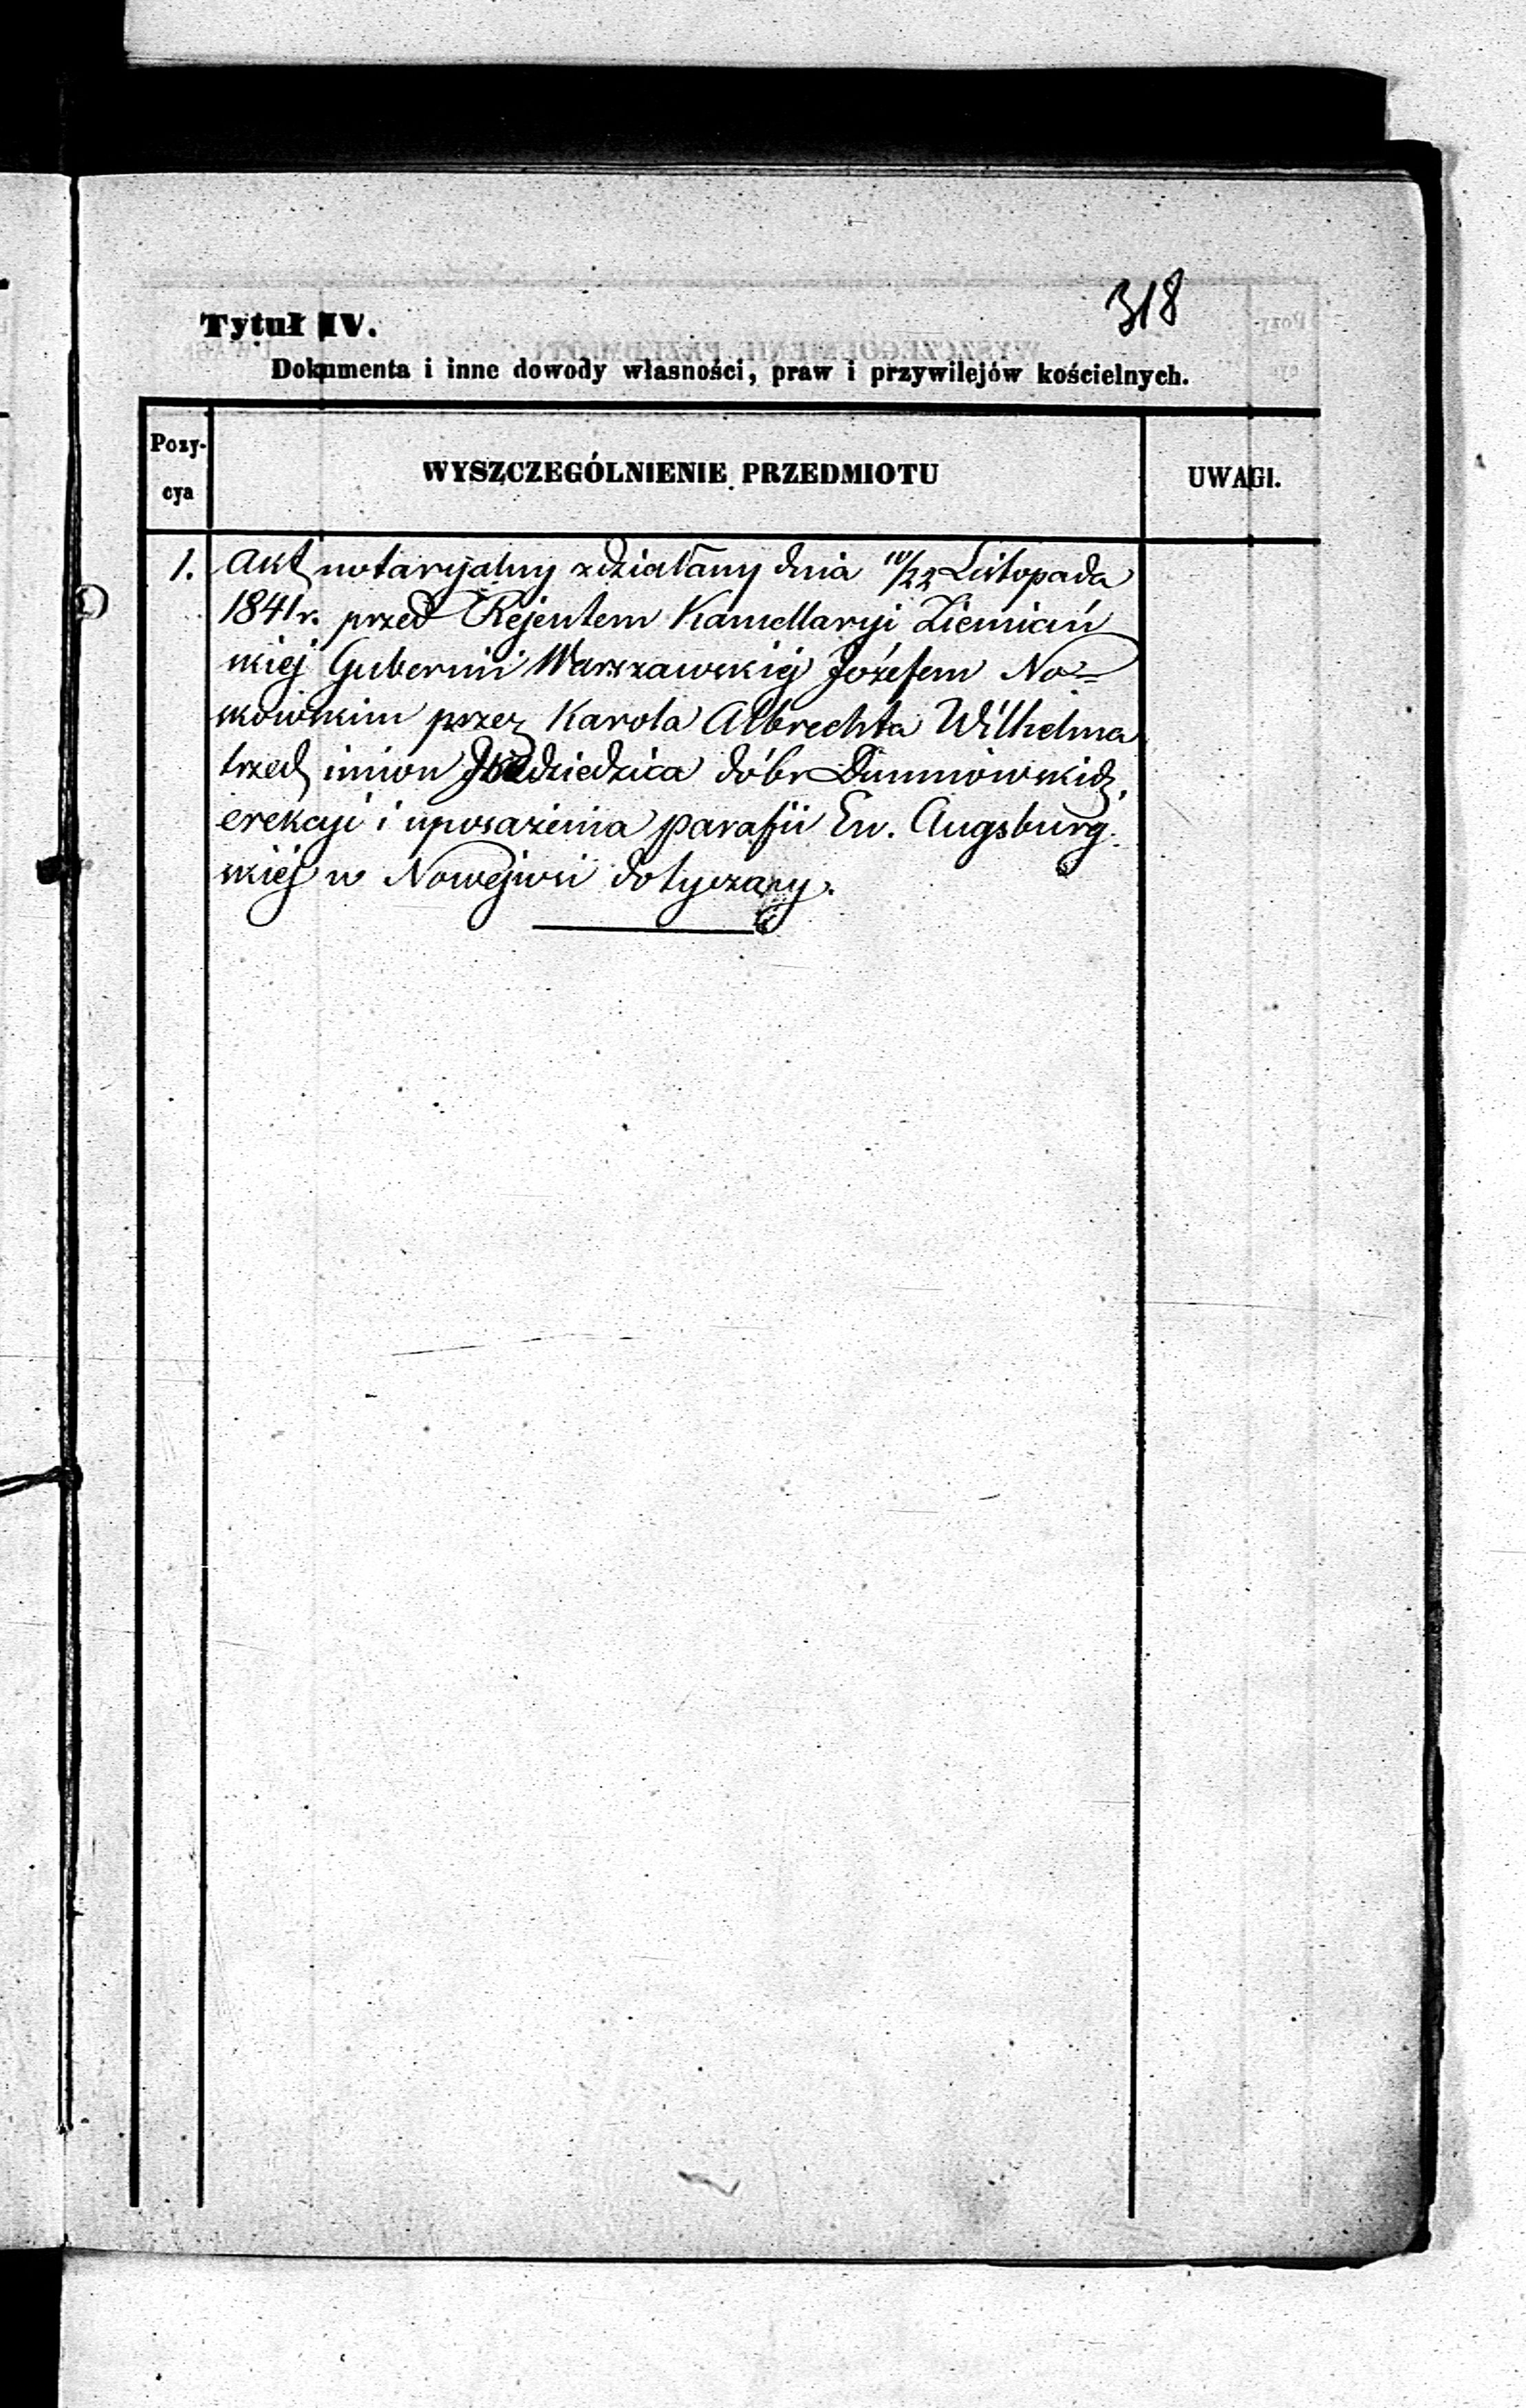 318
Tytuł IV.
Dokumenta i inne dowody własności, praw i przywilejów kościelnych.
Pozy-
cya
WYSZCZEGÓLNIENIE PRZEDMIOTU
UWAGI.
1. Akt notaryjalny zdziałany dnia 10/22 Listopada
1841 r. przed Rejentem Kancellaryi Ziemiań
skiej Gubernii Warszawskiej Józefem No=
skowskim przez Karola Albrechta Wilhelma
trzech imion dziedzica dóbr
erekcyi i uposażenia parafii Ew. Augsburg.
skiej w Nowejwsi dotyczący.